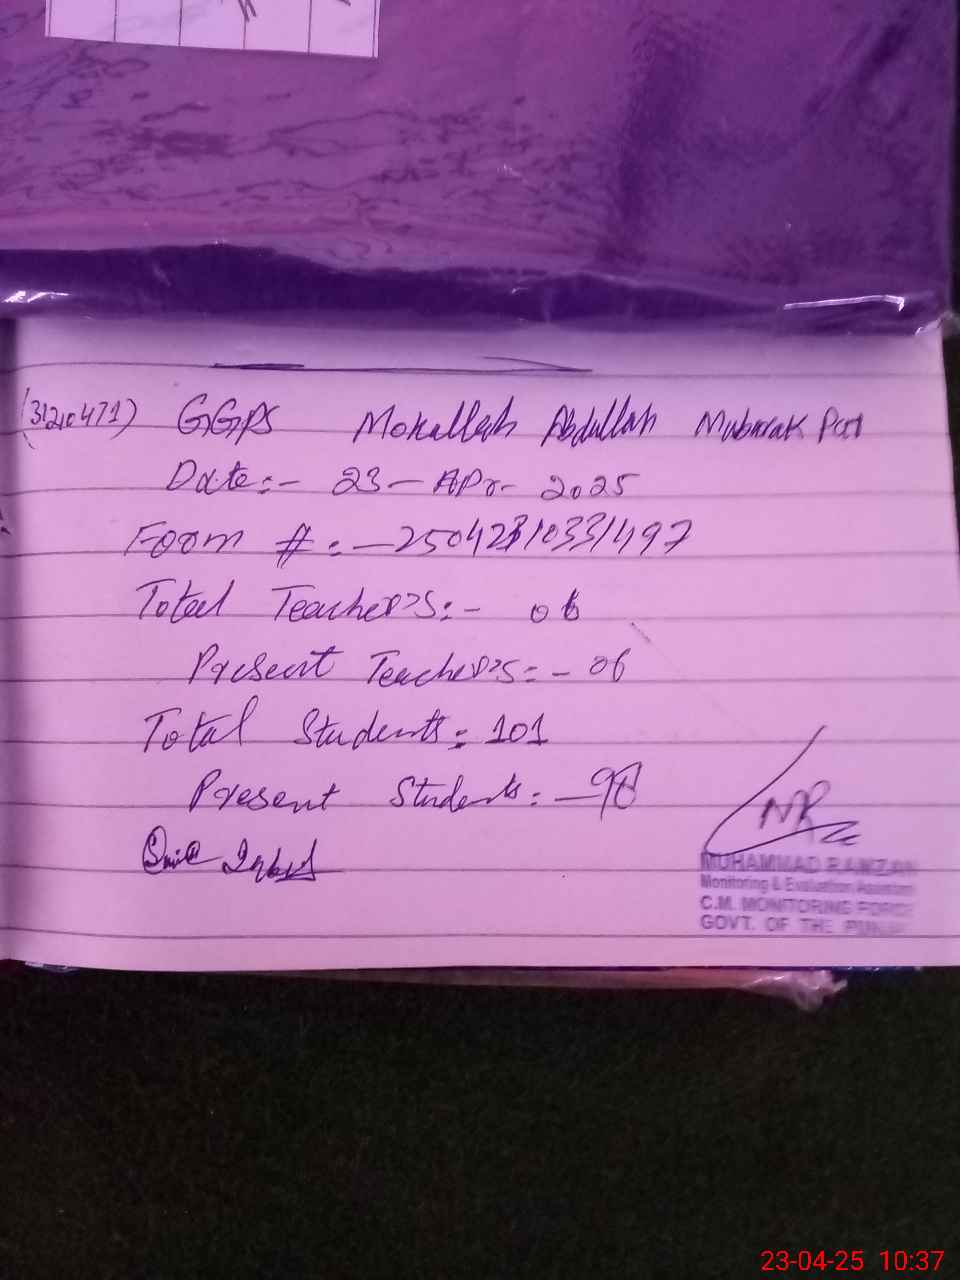 (31210471) GGPS Mohallah Abdullah Mubarak Pur
Date:- 23-Apr-2025
Form #:-25042310331497
Total Teachers:- 06
Present Teachers:- 06
Total Students: 101
Present Students:- 98
Iqbal
MR
MUHAMMAD RAMZAN
Monitoring & Evaluation Assistant
C.M. MONITORING FORCE
GOVT. OF THE PUNJAB
23-04-25 10:37